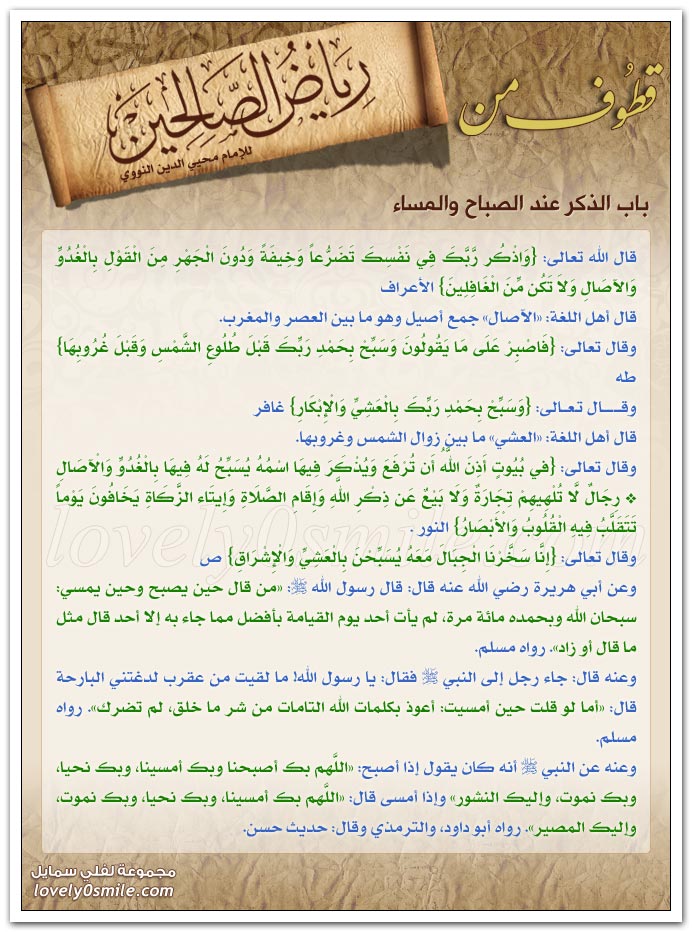 قطوف من
رياض الصالحين
للإمام محيي الدين النووي
باب الذكر عند الصباح والمساء
قال الله تعالى: {وَاذْكُر رَّبَّكَ فِي نَفْسِكَ تَضَرُّعاً وَخِيفَةً وَدُونَ الْجَهْرِ مِنَ الْقَوْلِ بِالْغُدُوِّ
وَالآصَالِ وَلاَ تَكُن مِّنَ الْغَافِلِينَ} الأعراف
قال أهل اللغة: «الآصال» جمع أصيل وهو ما بين العصر والمغرب.
وقال تعالى: {فَاصْبِرْ عَلَى مَا يَقُولُونَ وَسَبِّحْ بِحَمْدِ رَبِّكَ قَبْلَ طُلُوعِ الشَّمْسِ وَقَبْلَ غُرُوبِهَا}
طه
وقــال تعـالى: {وَسَبِّحْ بِحَمْدِ رَبِّكَ بِالْعَشِيِّ وَالْإِبْكَارِ} غافر
قال أهل اللغة: «العشي» ما بين زوال الشمس وغروبها.
وقال تعالى: {فِي بُيُوتٍ أَذِنَ اللَّهُ أَن تُرْفَعَ وَيُذْكَرَ فِيهَا اسْمُهُ يُسَبِّحُ لَهُ فِيهَا بِالْغُدُوِّ وَالْآصَالِ
❖ رِجَالٌ لَّا تُلْهِيهِمْ تِجَارَةٌ وَلَا بَيْعٌ عَن ذِكْرِ اللَّهِ وَإِقَامِ الصَّلَاةِ وَإِيتَاء الزَّكَاةِ يَخَافُونَ يَوْماً
تَتَقَلَّبُ فِيهِ الْقُلُوبُ وَالْأَبْصَارُ} النور .
وقال تعالى: {إِنَّا سَخَّرْنَا الْجِبَالَ مَعَهُ يُسَبِّحْنَ بِالْعَشِيِّ وَالْإِشْرَاقِ} ص
وعن أبي هريرة رضي الله عنه قال: قال رسول الله ﷺ: «من قال حين يصبح وحين يمسي:
سبحان الله وبحمده مائة مرة، لم يأت أحد يوم القيامة بأفضل مما جاء به إلا أحد قال مثل
ما قال أو زاد». رواه مسلم.
وعنه قال: جاء رجل إلى النبي ﷺ فقال: يا رسول الله! ما لقيت من عقرب لدغتني البارحة
قال: «أما لو قلت حين أمسيت: أعوذ بكلمات الله التامات من شر ما خلق، لم تضرك». رواه
مسلم.
وعنه عن النبي ﷺ أنه كان يقول إذا أصبح: «اللَّهم بك أصبحنا وبك أمسينا، وبك نحيا،
وبك نموت، وإليك النشور» وإذا أمسى قال: «اللَّهم بك أمسينا، وبك نحيا، وبك نموت،
وإليك المصير». رواه أبو داود، والترمذي وقال: حديث حسن.
مجموعة لفلي سمايل
lovely0smile.com